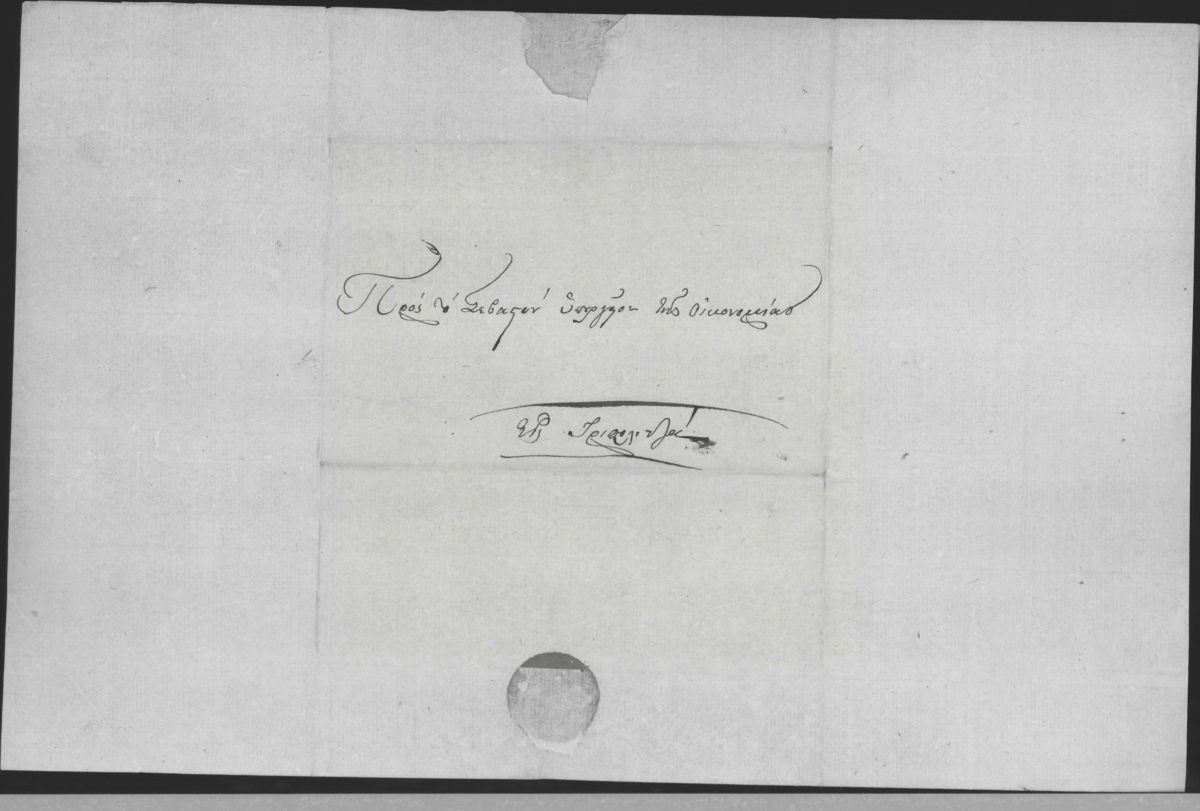 Πρός τό Σεβαστόν ὑπουργεῖον τῆς Οἰκονομίας
εἰς Τριπολιτζά